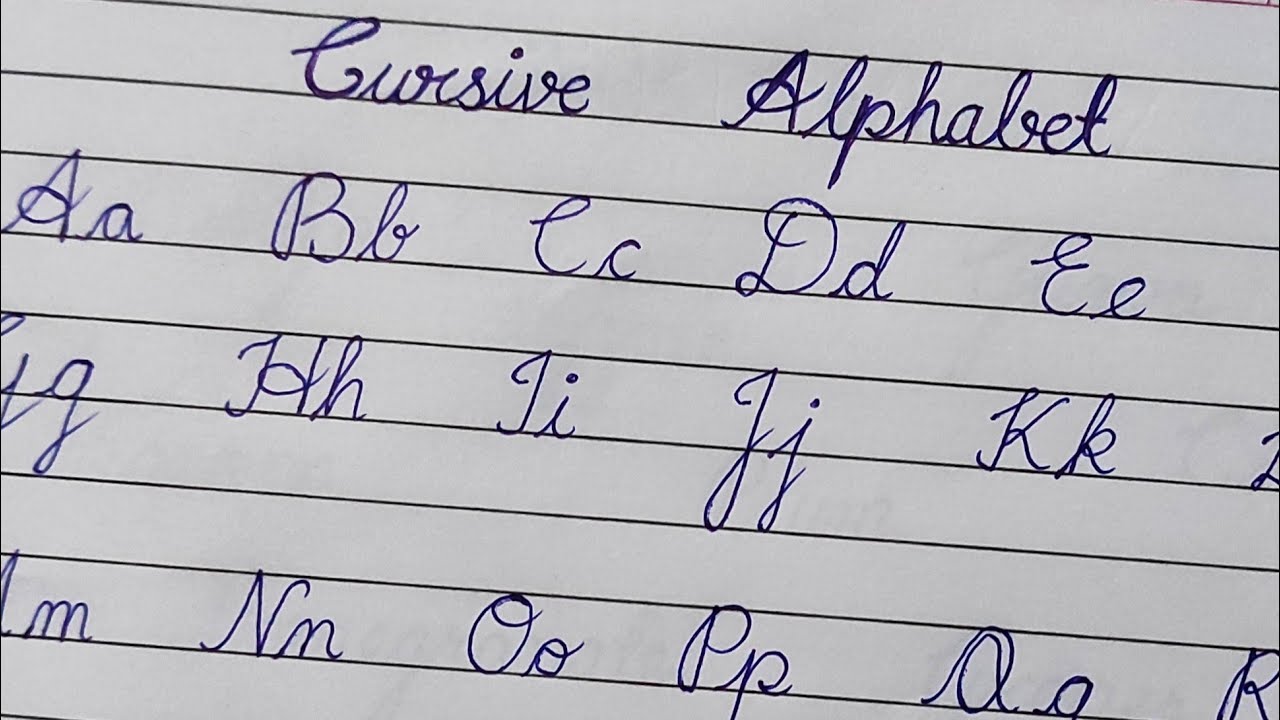 Cursive Alphabet
Aa Bb Cc Dd Ee
g Hh Ii Jj Kk
m Nn Oo Pp Qq R